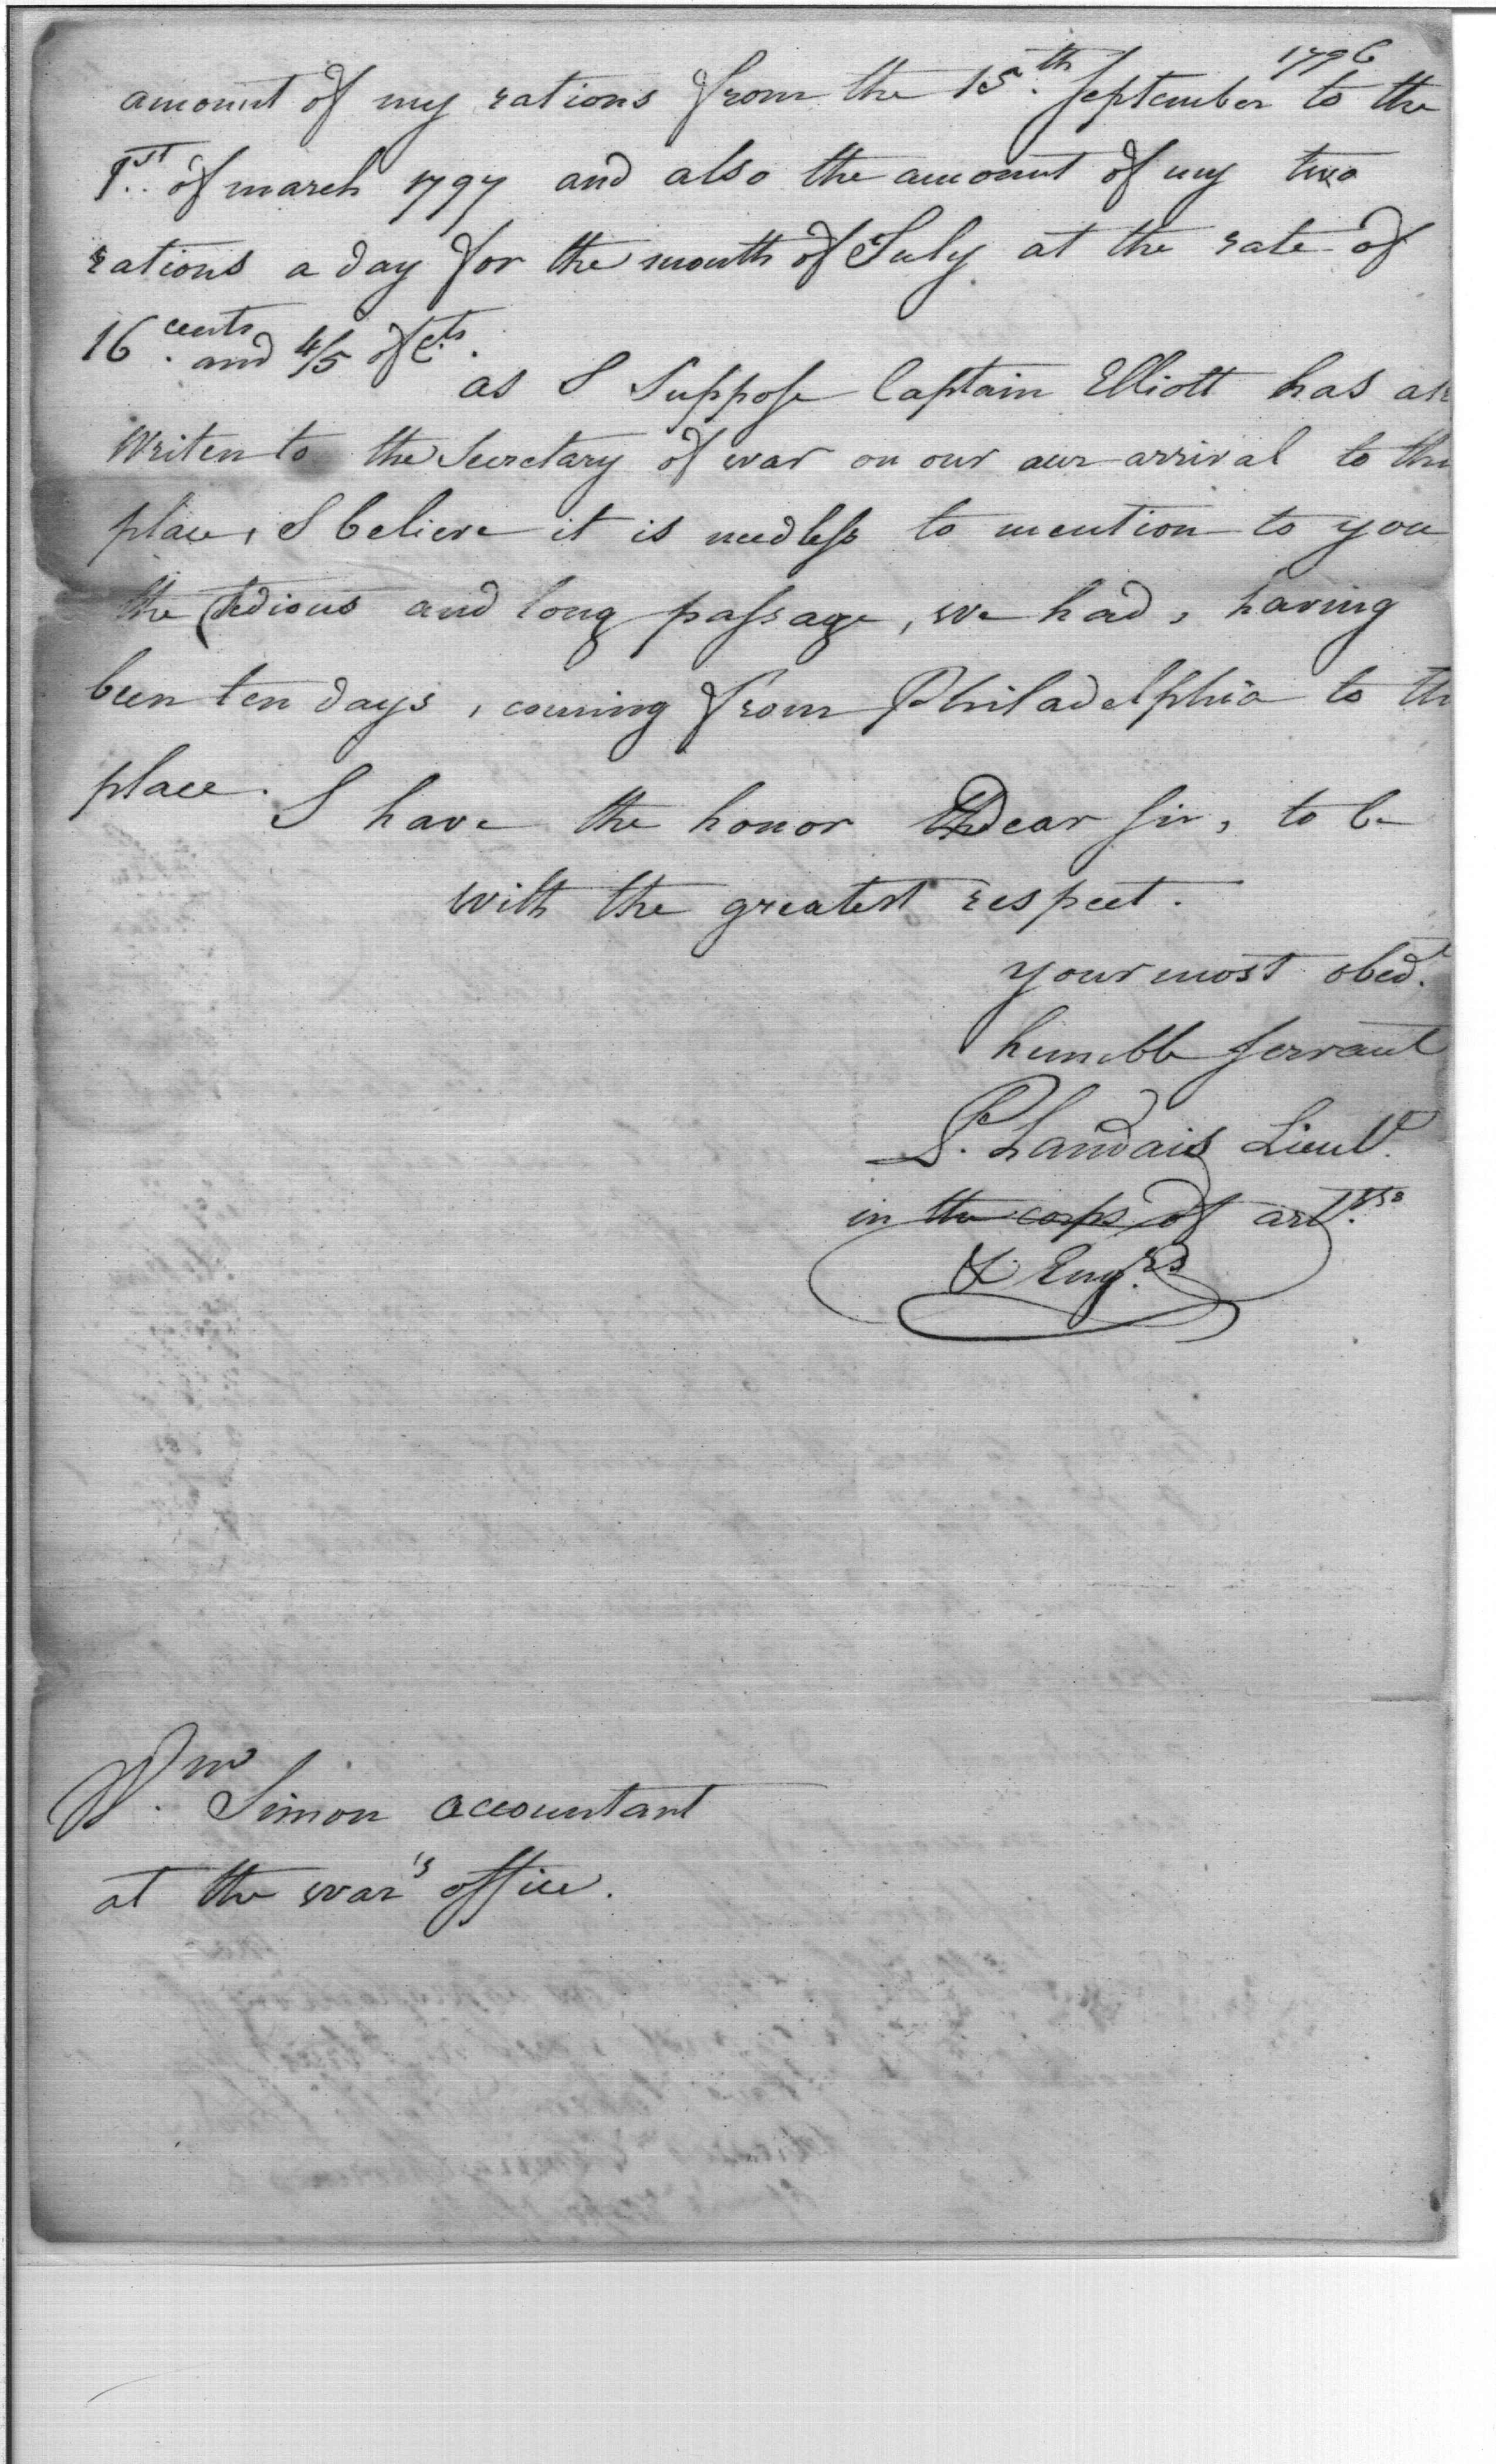 amount of my rations from the 15.th September 1796 to the
1st. of march 1797 and also the amount of my two
rations a day for the month of July at the rate of
16 cents. and 4/5 of Cts.
as I Suppose Captain Elliott has
Writen to the Secretary of war on our our arrival to
place, I believe it is needless to mention to you
the tedious and long passage, we had, having
been ten days, coming from Philadelphia to
place.
I have the honor Dear Sir, to be
with the greatest respect.
your most obed.t
humble Servant
P. Landais Lieut.
in the corps of art.
& Eng.rs
Wm. Simon accountant
at the war's office.